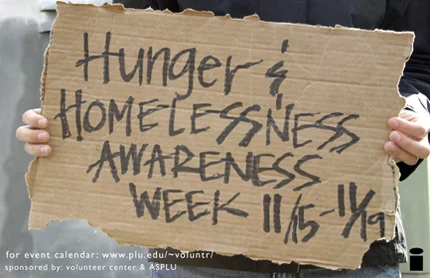 Hunger &
HOMELESSNESS
AWARENESS
WEEK 11/15-11/19
for event calendar: www.plu.edu/~voluntr/
sponsored by: volunteer center & ASPLU
i